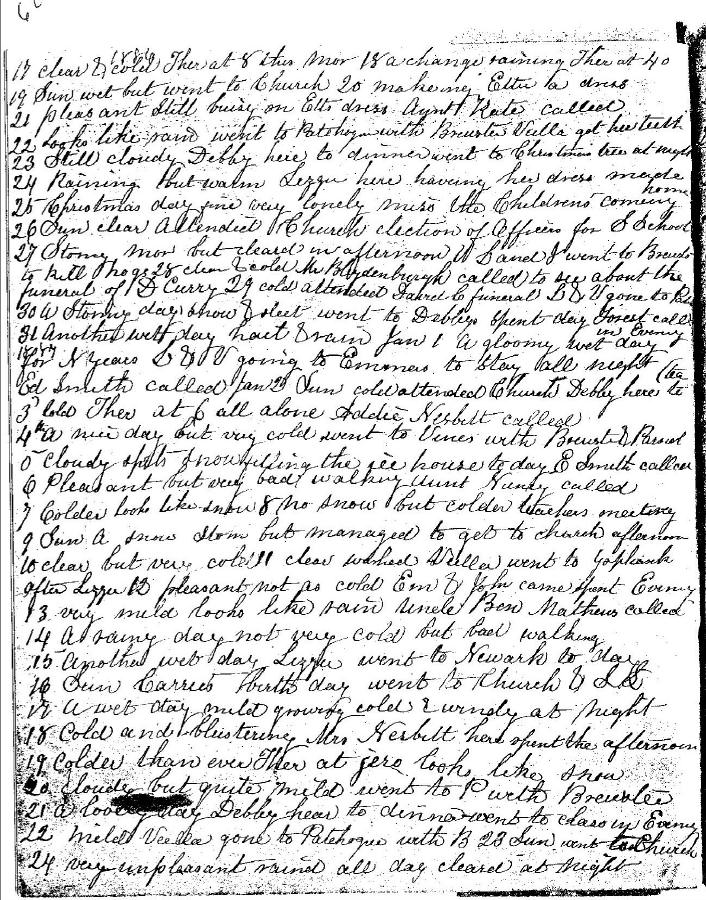 6
1886
17 clear & cold Ther at 8 this mor 18 a change raining Ther at 40
19 Sun wet but went to Church 20 making Etta a dress
21 pleasant Still buisy on Etts dress Aunt Kate called
22 Looks like rain went to Patchogu with Brewster Vella got her teeth
23 Still cloudy Debby here to dinner went to Christmas tree at night
24 Raining but warm Lizzie here having her dress made
home
25 Christmas day fine very lonely miss the Childrens coming
26 Sun clear Attendid Church election of Officers for S School
27 Stomy mor but cleard in afternoon W S and I went to Brewst
to kill hogs 28 clear & cold Mr Blydenburgh called to see about the
funeral of D Curry 29 cold attended C funeral D & V gone to
30 A Stormy day snow & sleet went to Debbys spent day Forest call
in Evenig
31 Another wett day hail & rain Jan 1 A gloomy wet day
1887
for N years D & V going to Emmas to stay all night
(tea
Ed Smith called Jan 2 Sun cold attended Church Debby here to
3 Cold Ther at 6 all alone Addie Nesbitt called
4th A nice day but very cold went to Vines with Brewst &
5 cloudy spits snow filling the ice house to day E Smith called
6 Pleasant but very bad walking Aunt Nancy called
7 Colder looks like snow 8 no snow but colder teachers meeting
9 Sun A snow Stom but managed to get to church afternoon
10 clear but very cold 11 clear washed Vella went to Yaphank
after Lizzie 12 pleasant not as cold Em & John came spent Evenig
13 very mild looks like rain Uncle Ben Mathews called
14 A rainy day not very cold but bad walking
15 Another wet day Lizzie went to Newark to day
16 Sun Carries birth day went to Church & S S
17 A wet day mild growing cold & windy at night
18 Cold and blustering Mrs Nesbitt here spent the afternoon
19 Colder than ever Ther at zero looks like snow
20 Cloudy but quite mild went to P with Brewster
21 A lovely day Debby hear to dinner went to class in Evenig
22 mild Veella gone to Patchogue with B 23 Sun went to Church
24 very unpleasant raind all day cleard at night